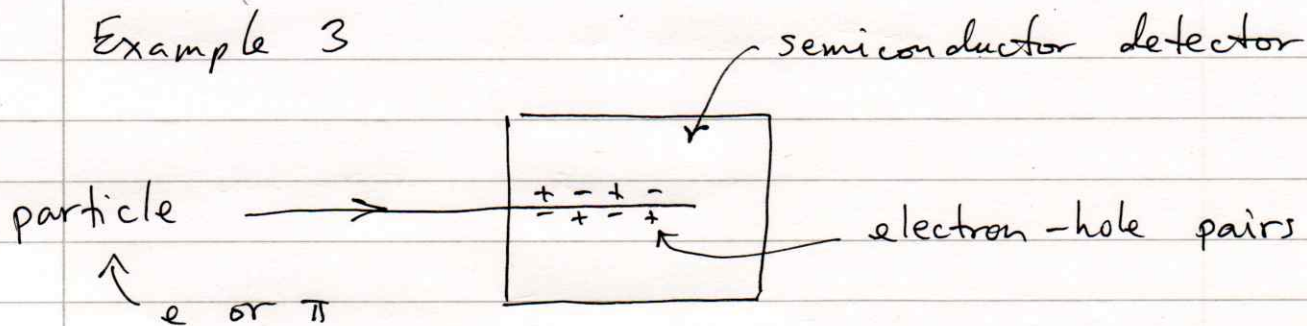 Example 3
semiconductor detector
+ - + -
- + - +
particle
electron-hole pairs
e or π